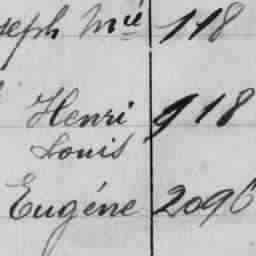 seph Mié 118
Henri 918
Louis
Eugéne 2096